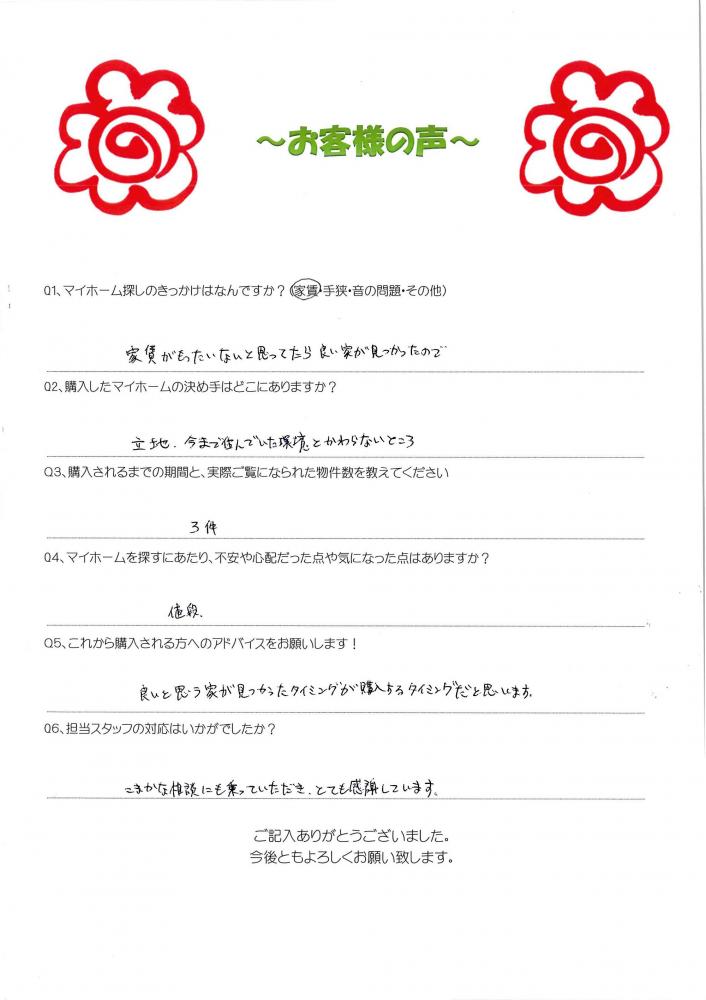 ～お客様の声～
Q1、マイホーム探しのきっかけはなんですか？（家賃・手狭・音の問題・その他）
家賃がもったいないと思ってたら良い家が見つかったので
Q2、購入したマイホームの決め手はどこにありますか？
立地、今まで住んでいた環境とかわらないところ
Q3、購入されるまでの期間と、実際ご覧になられた物件数を教えてください
3件
Q4、マイホームを探すにあたり、不安や心配だった点や気になった点はありますか？
値段、
Q5、これから購入される方へのアドバイスをお願いします！
良いと思う家が見つかったタイミングが購入するタイミングだと思います。
Q6、担当スタッフの対応はいかがでしたか？
こまかな相談にも乗っていただき、とても感謝しています。
ご記入ありがとうございました。
今後ともよろしくお願い致します。